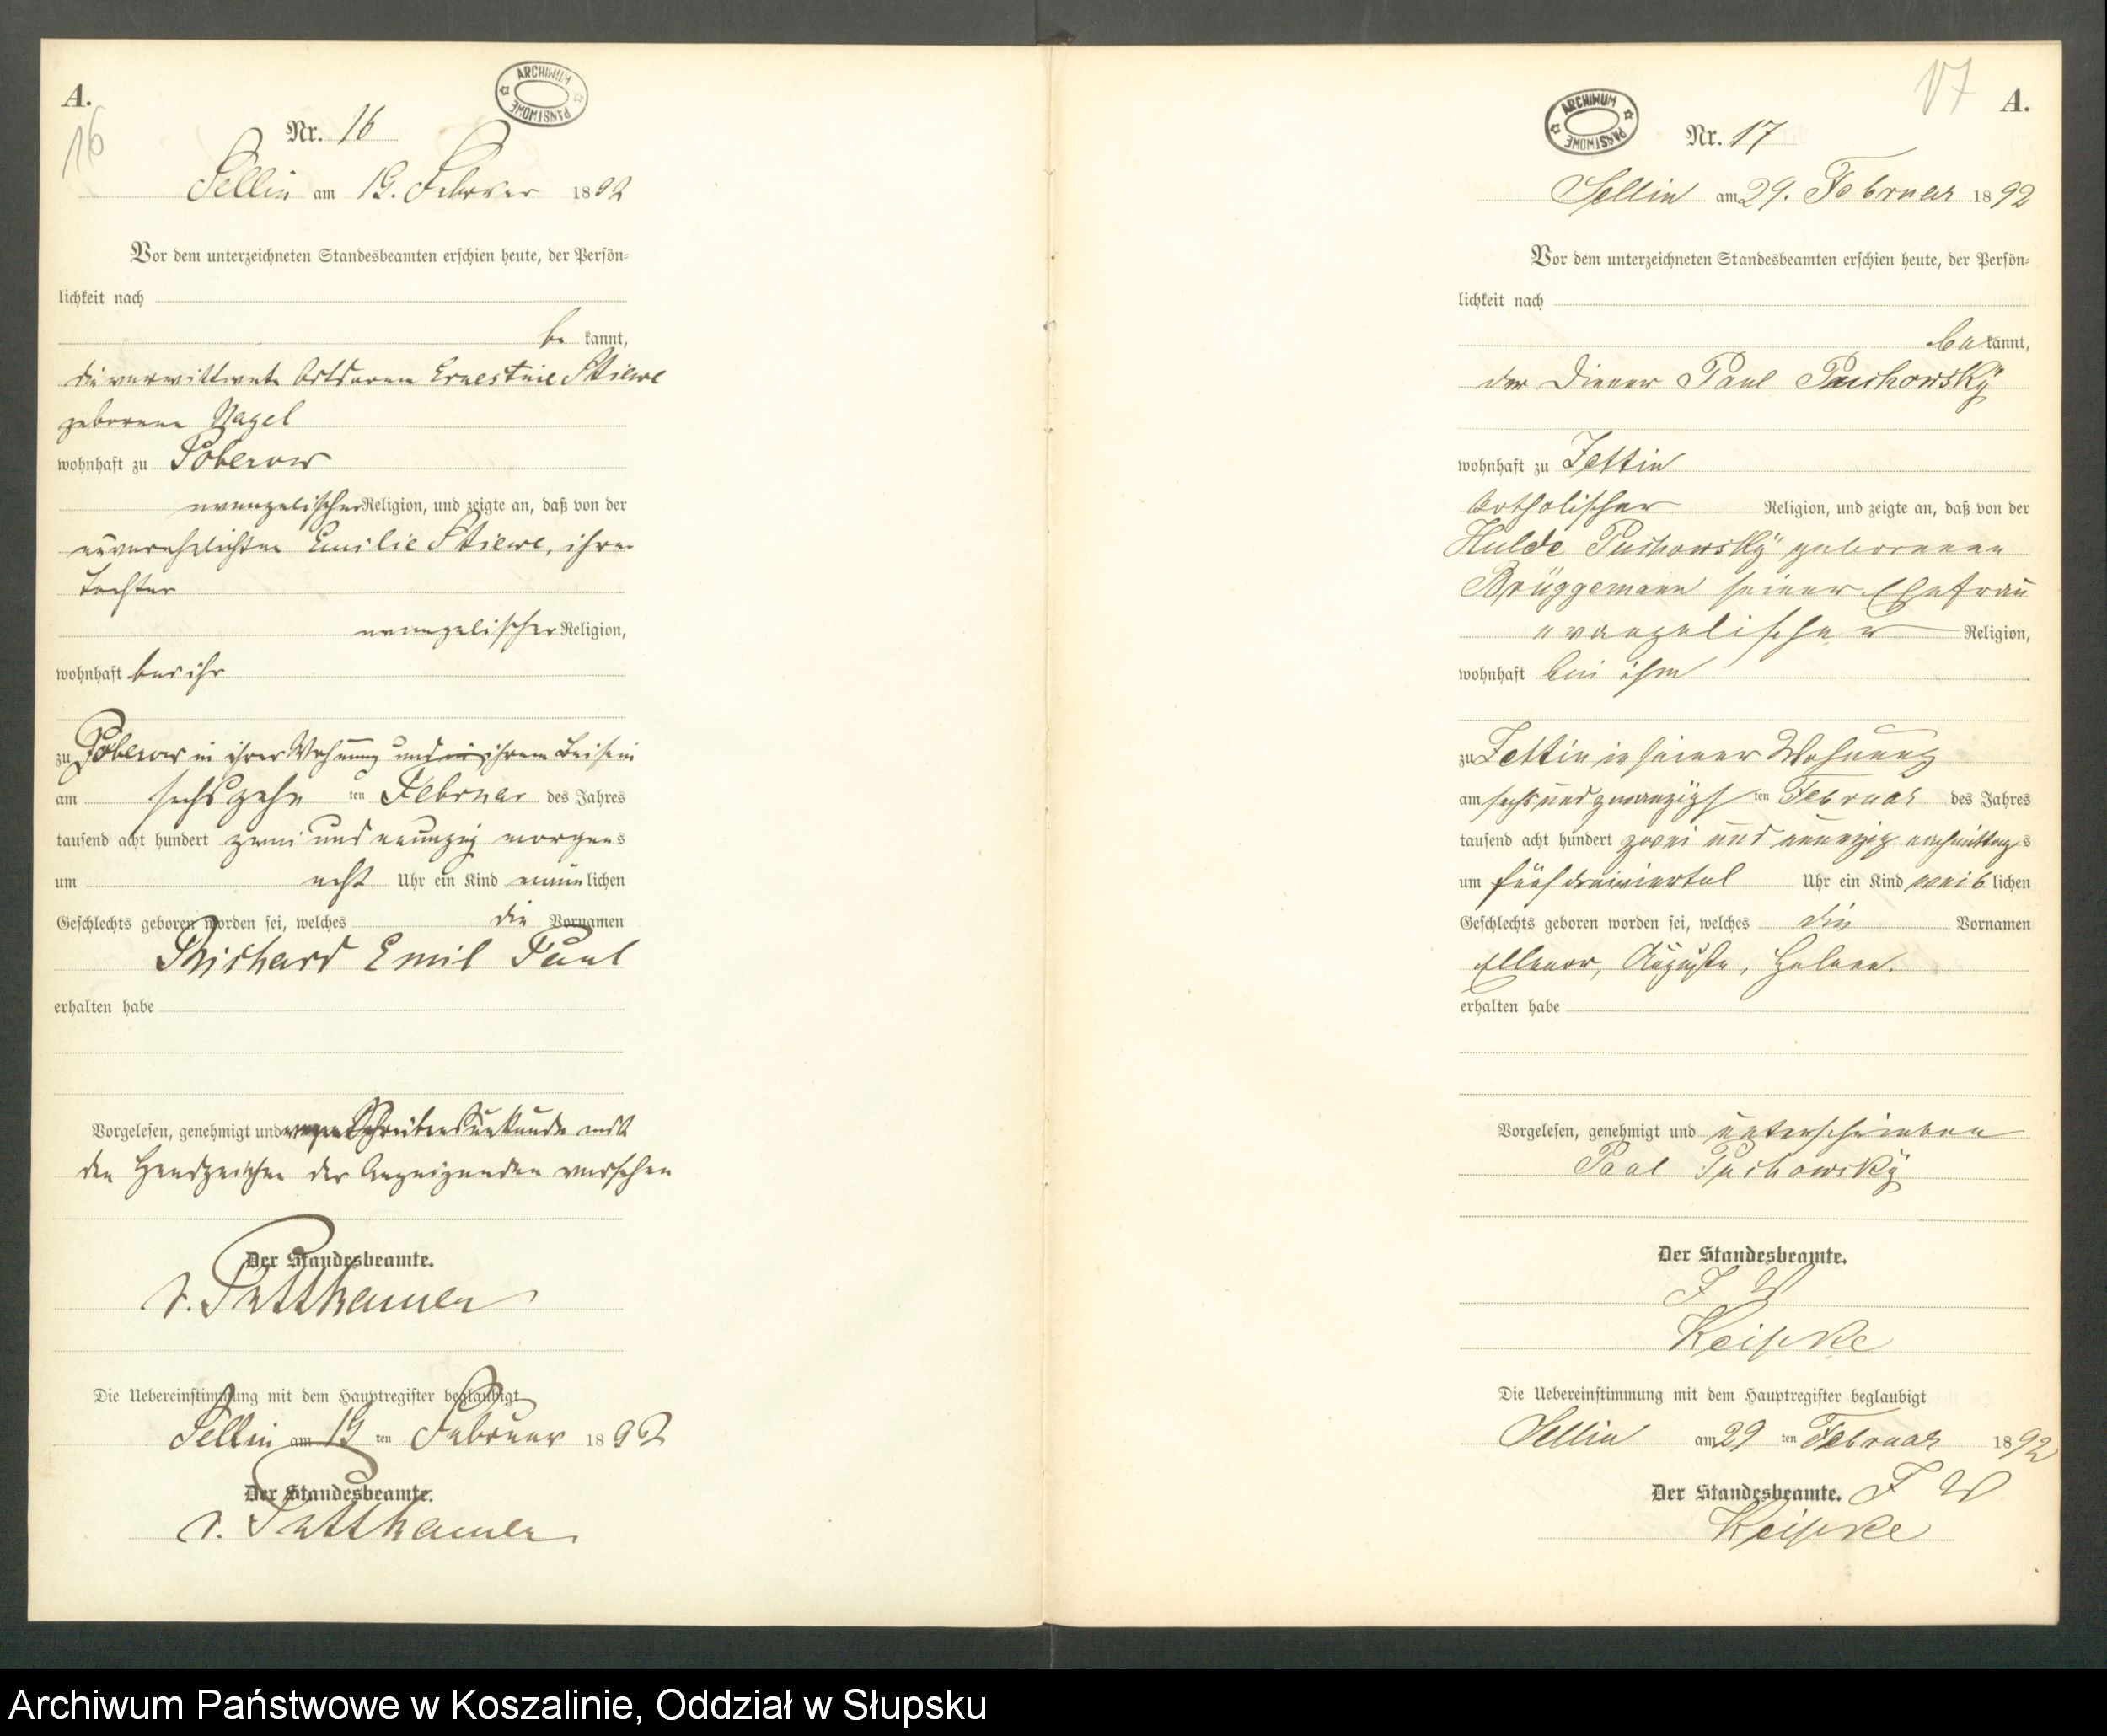 A.
16
ARCHIWUM PAŃSTWOWE
Nr. 16
Sellin am 19. Februar 1892
Vor dem unterzeichneten Standesbeamten erschien heute, der Persön-
lichkeit nach
be kannt,
die verwittwete Ortsarme Ernestine Stiewe
geborene Nagel
wohnhaft zu Poberow
evangelischer Religion, und zeigte an, daß von der
unverehelichten Emilie Stiewe, ihrer
Tochter
evangelischer Religion,
wohnhaft bei ihr
zu Poberow in ihrer Wohnung und in ihrem Beisein
am sechszehn ten Februar des Jahres
tausend acht hundert zwei und neunzig morgens
um acht Uhr ein Kind männlichen
Geschlechts geboren worden sei, welches die Vornamen
Richard Emil Paul
erhalten habe
Vorgelesen, genehmigt und wegen Schreibensunkunde mit
den Handzeichen der Anzeigenden versehen
Der Standesbeamte.
v. Puttkamer
Die Uebereinstimmung mit dem Hauptregister beglaubigt
Sellin am 19 ten Februar 1892
Der Standesbeamte.
v. Puttkamer
17
A.
ARCHIWUM PAŃSTWOWE
Nr. 17
Sellin am 29. Februar 1892
Vor dem unterzeichneten Standesbeamten erschien heute, der Persön-
lichkeit nach
be kannt,
der Diener Paul Puchowsky
wohnhaft zu Zettin
katholischer Religion, und zeigte an, daß von der
Hulda Puchowsky geborenen
Brüggemann seiner Ehefrau
evangelischer Religion,
wohnhaft bei ihm
zu Zettin in seiner Wohnung
am sechsundzwanzigs ten Februar des Jahres
tausend acht hundert zwei und neunzig nachmittags
um fünf dreiviertel Uhr ein Kind weiblichen
Geschlechts geboren worden sei, welches die Vornamen
Ellenor, Auguste, Helene.
erhalten habe
Vorgelesen, genehmigt und unterschrieben
Paul Puchowsky
Der Standesbeamte.
I V
Keipke
Die Uebereinstimmung mit dem Hauptregister beglaubigt
Sellin am 29 ten Februar 1892
Der Standesbeamte. I V
Keipke
Archiwum Państwowe w Koszalinie, Oddział w Słupsku